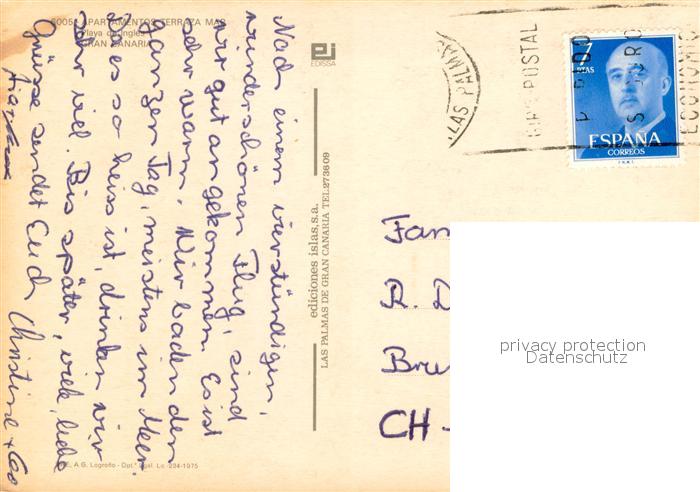 6005 APARTAMENTOS TERRAZA MAR
Playa del Inglés
GRAN CANARIA
Nach einem vierstündigen,
wunderschönen Flug, sind
wir gut angekommen. Es ist
sehr warm. Wir baden den
ganzen Tag, meistens im Meer.
Da es so heiss ist, drinken wir
sehr viel. Bis später, viele, liebe
Grüsse sendet Euch Christine + Co
EDISSA
ediciones islas,s.a.
LAS PALMAS DE GRAN CANARIA TEL:273609
LAS PALMAS
GIRO POSTAL
RAPIDO
SEGURO
ECONOMICO
7
PTAS
ESPAÑA
CORREOS
Fam
R. D
Bru
CH -
privacy protection
Datenschutz
A.G. Logroño - Dpt.º Legal. Lo. 224-1975